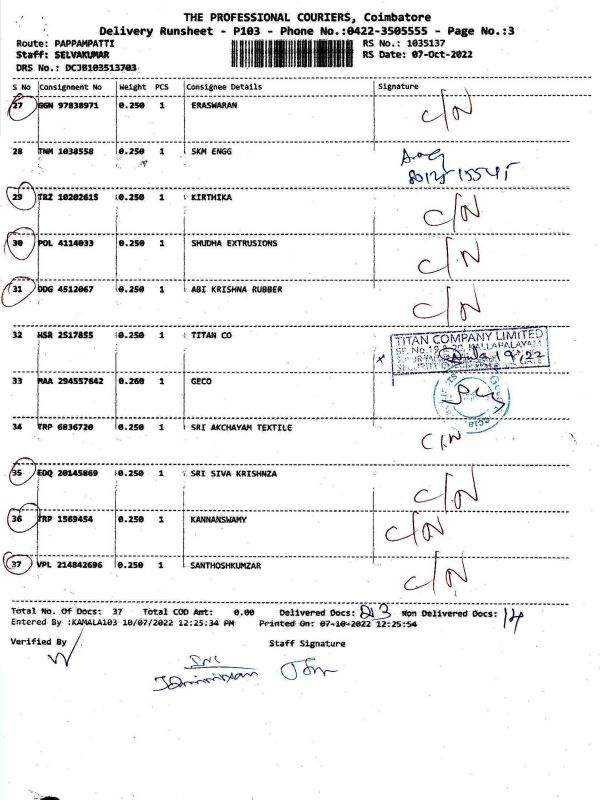 THE PROFESSIONAL COURIERS, Coimbatore
Delivery Runsheet - P103 - Phone No.:0422-3505555 - Page No.:3
Route: PAPPAMPATTI RS No.: 1035137
Staff: SELVAKUMAR RS Date: 07-Oct-2022
DRS No.: DCJB103513703
S No Consignment No Weight PCS Consignee Details Signature
27 GGN 97838971 0.250 1 ERASWARAN C/N
28 TNM 1038558 0.250 1 SKM ENGG
29 TRZ 10202615 0.250 1 KIRTHIKA C/N
30 POL 4114033 0.250 1 SHUDHA EXTRUSIONS C/N
31 DDG 4512067 0.250 1 ABI KRISHNA RUBBER C/N
32 HSR 2517855 0.250 1 TITAN CO
TITAN COMPANY LIMITED
33 MAA 294557642 0.260 1 GECO
34 TRP 6836720 0.250 1 SRI AKCHAYAM TEXTILE C/N
35 EDQ 20145869 0.250 1 SRI SIVA KRISHNZA C/N
36 TRP 1569454 0.250 1 KANNANSWAMY C/N
37 VPL 214842696 0.250 1 SANTHOSHKUMZAR C/N
Total No. Of Docs: 37 Total COD Amt: 0.00 Delivered Docs: 23 Non Delivered Docs: 14
Entered By :KAMALA103 10/07/2022 12:25:34 PM Printed On: 07-10-2022 12:25:54
Verified By Staff Signature